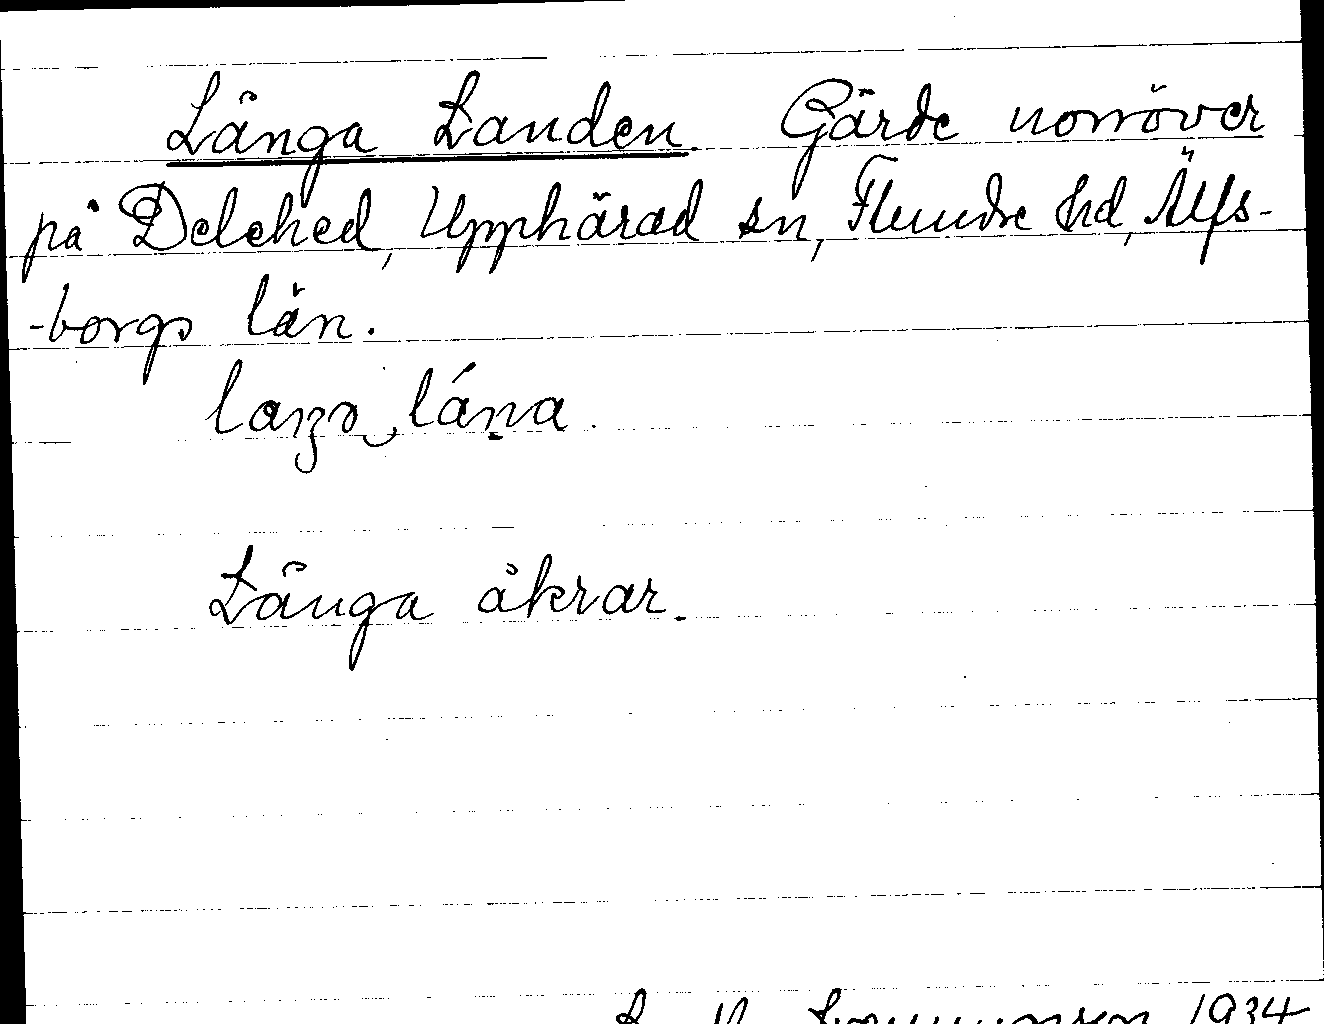 Långa Landen. Gärde norröver
på Delehed, Upphärad sn, Flundre hd, Älfs-
-borgs län.
Långa åkrar.
1934